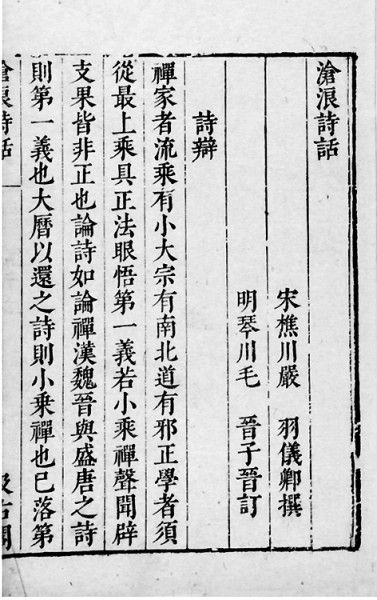 滄浪詩話
宋樵川嚴 羽儀卿撰
明琴川毛 晉子晉訂
詩辯
禪家者流乘有小大宗有南北道有邪正學者須
從最上乘具正法眼悟第一義若小乘禪聲聞辟
支果皆非正也論詩如論禪漢魏晉與盛唐之詩
則第一義也大曆以還之詩則小乘禪也已落第
滄浪詩話 一 汲古閣